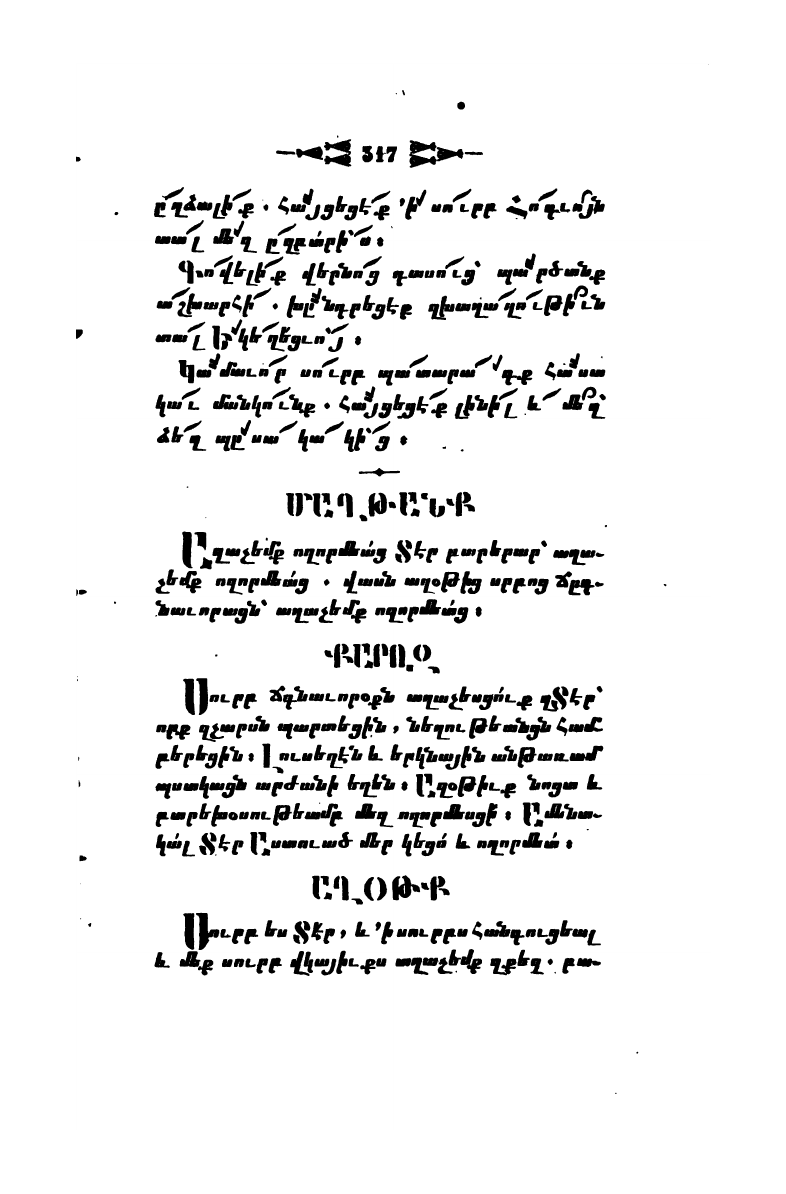 317
ըղձալիք . հայցեցէք ՚ի սուրբ Հոգւոյն
տալ մեզ ըզբարիս ։
Գովելիք վերնոց դասուց՝ պարծանք
աշխարհի . խնդրեցէք զխաղաղութիւն
տալ Եկեղեցւոյ ։
Կամաւոր սուրբ պատարագք հաստա
կաւ մանկունք . հայցեցէք լինիլ և մեզ՝
ձեզ պսակակից ։
ՄԱՂԹԱՆՔ
Աղաչեմք ողորմեաց Տէր բարերար՝ աղա-
չեմք ողորմեաց . վասն աղօթից սրբոց ճըգ-
նաւորացն՝ աղաչեմք ողորմեաց ։
ՔԱՐՈԶ
Սուրբ ճգնաւորօքն աղաչեսցուք զՏէր՝
որք զչարսն պարտեցին, նեղութեանցն համ
բերեցին ։ Լուսեղէն և երկնային անթառամ
պսակացն արժանի եղեն ։ Աղօթիւք նոցա և
բարեխօսութեամբ մեզ ողորմեսցի ։ Ամենա-
կալ Տէր Աստուած մեր կեցո և ողորմեա ։
ԱՂՕԹՔ
Սուրբ ես Տէր, և ՚ի սուրբս հանգուցեալ
և մեք սուրբ վկայիւքս աղաչեմք զքեզ . բա-